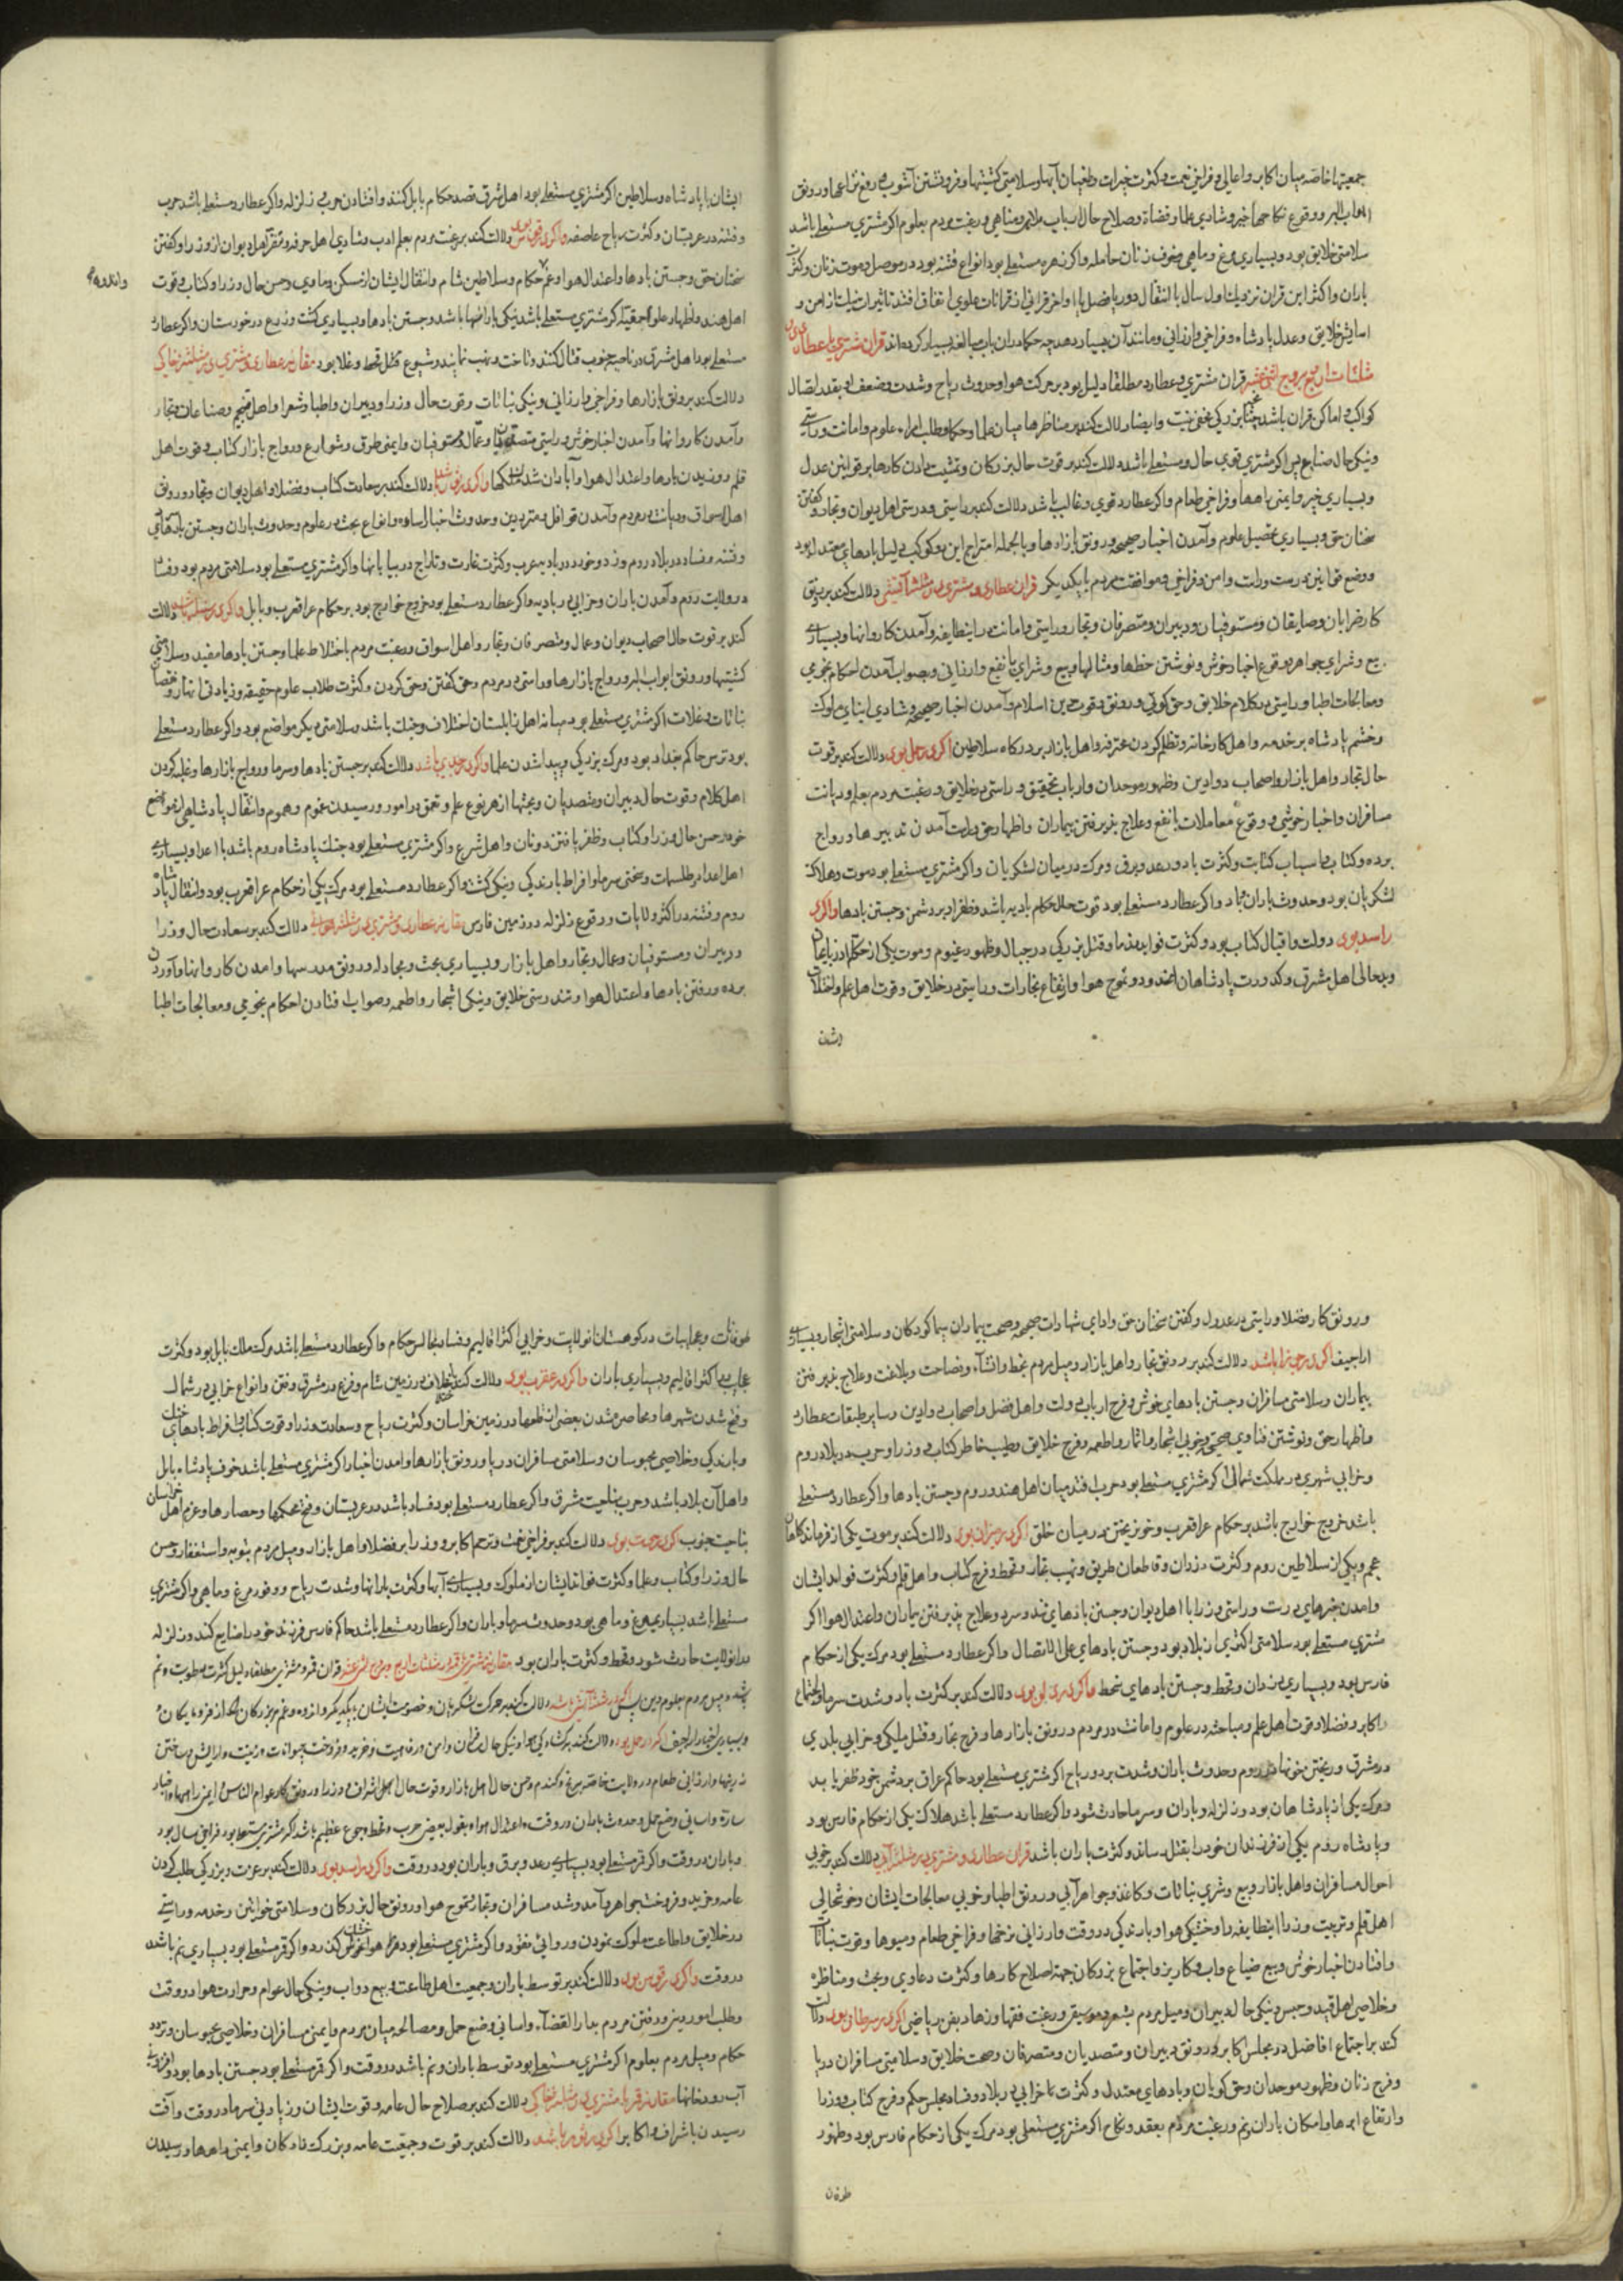 جمعیتها خاصه میان اکابر و اعالی و فراخی نعمت و کثرت خیرات و طغیان آبها و سلامتی کشتیها و فرونشستن آشوب و رفع نزاعها و رونق
ابواب البر و وقوع نکاحها خیر و شادی علما و قضاة و صلاح حال ارباب ملاهی و مناهی و رغبت مردم بعلوم اکر مشتری مستعلی باشد
سلامتی خلایق بود و بسیاری مرغ و ماهی و خوف زنان حامله واکر زهره مستعلی بود انواع فتنه بود در موصل و موت زنان و کثرت
باران و اکثر این قران نزدیک اول سال یا انتقال دور یا فصل یا اواخر قرانی از قرانات علوی اتفاق افتد تاثیرات نیک از امن و
اسایش خلایق و عدل پادشاه و فراخی و ارزانی و مانند آن بسیار دهد چه حکما دران باب مبالغه بسیار کرده‌اند قران مشتری با عطارد در
مثلثات اربع و بروج اثنی عشر قران مشتری و عطارد مطلقا دلیل بود بر حرکت هوا و حدوث ریاح و شدت و ضعف او بقدر اتصال
کواکب و اماکن قران باشد چنانچه بر زیرکی مخفی نیست و ایضا دلالت کند بر مناظرها میان علما و حکما و طلب امراء علوم و امانت و راستی
و نیکی حال صنایع پس اکر مشتری قوی حال و مستعلی باشد دلالت کند بر قوت حال بزرکان و تمشیت دادن کارها بر قوانین عدل
و بسیاری خیر و ایمنی راهها و فراخی طعام واکر عطارد قوی و غالب باشد دلالت کند بر راستی و درستی اهل دیوان و تجار و کفتن
سخنان حق و بسیاری تحصیل علوم و آمدن اخبار صحیحه و رونق بازارها و بالجمله امتزاج این دو کوکب دلیل بادهای معتدل بود
و وضع قوانین درست و راست و امن و فراخی و موافقت مردم با یکدیکر قران عطارد و مشتری در مثلثه آتشی دلالت کند بر رونق
کار ضرابان و صایغان و مستوفیان و دبیران و متصرفان و تجار و راستی و امانت در اینطایفه و آمدن کاروانها و بسیاری
بیع و شرای جواهر و وقوع اخبار خوش و نوشتن خطها و مثالها و بیع و شرای با نفع و ارزانی و بصواب آمدن احکام نجومی
و معالجات اطبا و راستی در کلام خلایق و حق کوئی و رونق و قوت دین اسلام و آمدن اخبار صحیحه و شادی ابنای ملوک
و خشم پادشاه بر خدمه و اهل کارخانه و تظلم کردن محترفه و اهل بازار بر درکاه سلاطین اکر در حمل بود دلالت کند بر قوت
حال تجار و اهل بازار و اصحاب دواوین و ظهور موحدان و ارباب تحقیق و راستی در خلایق و رغبت مردم بعلم و دیانت
مسافران و اخبار خوشی و وقوع معاملات با نفع و علاج پذیرفتن بیماران و اظهار حق و راست آمدن تدبیرها و رواج
برده و کتاب و اسباب کتابت و کثرت باد و رعد و برق و مرک در میان لشکریان واکر مشتری مستعلی بود موت و هلاک
لشکریان بود و حدوث باران و باد واکر عطارد مستعلی بود قوت حال حکام بادیه باشد و ظفر او بر دشمن و جستن بادها واکر در
اسد بود دولت و اقبال کتاب بود و کثرت فواید و قتل بزرکی در جبال و ظهور غیوم و موت یکی از حکام آذربایجان
و بدحالی اهل مشرق و کدورت پادشاهان هند و تموج هوا و ارتفاع بخارات و راستی در خلایق و قوت اهل علم و اختلاف
ایشان
ایشان با پادشاه و سلاطین اکر مشتری مستعلی بود اهل شرق قصد حکام بابل کنند و افتادن حرب و زلزله واکر عطارد مستعلی باشد حرب
و فتنه در عربستان و کثرت ریاح عاصفه واکر در قوس بود دلالت کند بر رغبت مردم بعلم و ادب و شادی اهل حرفه و تقرب اهل دیوان از وزرا و کفتن
سخنان حق و جستن بادها و اعتدال هوا و غم حکام و سلاطین شام و انتقال ایشان از مسکن و ماوی و حسن حال وزرا و کتاب و قوت
اهل هند و اظهار علوم حقیقیه اکر مشتری مستعلی باشد نیکی بارانها باشد و جستن بادها و بسیاری کشت و زرع در خوزستان واکر عطارد
مستعلی بود اهل مشرق در ناحیه جنوب قتال کنند و تاخت و نهب نمایند و شیوع قتل و قحط و غلا بود مقارنه عطارد و مشتری در مثلثه خاکی
دلالت کند بر رونق بازارها و فراخی و ارزانی و نیکی نباتات و قوت حال وزرا و دبیران و اطبا و شعرا و اهل تنجیم و صناعات و تجار
و آمدن کاروانها و آمدن اخبار خوش و راستی متصدیان و عمال و مستوفیان و ایمنی طرق و شوارع و رواج بازار کتاب و قوت اهل
قلم و وزیدن بادها و اعتدال هوا و آبادان شدن ملکها واکر در ثور باشد دلالت کند بر سعادت کتاب و فضلا و اهل دیوان و تجار و رونق
اهل اسواق و دیانت در مردم و آمدن قوافل و مترددین و حدوث اخبار ساره و انواع بحث در علوم و حدوث باران و جستن بادهای
و فتنه و فساد در بلاد روم و زد و خورد در بادیه عرب و کثرت غارت و تاراج در بیابانها واکر مشتری مستعلی بود سلامتی مردم بود و فساد
در ولایت روم و آمدن باران و خرابی در بادیه واکر عطارد مستعلی بود خروج خوارج بود بر حکام عراق عرب و بابل واکر در سنبله باشد دلالت
کند بر قوت حال اصحاب دیوان و عمال و متصرفان و تجار و اهل اسواق و رغبت مردم باختلاط علما و جستن بادها مفید و سلامتی
کشتیها و رونق ابواب البر و رواج بازارها و راستی در مردم و حق کفتن و حق کردن و کثرت طلاب علوم حقیقه و زیادتی انهار و نقصان
نباتات و غلات اکر مشتری مستعلی بود میانه اهل زابلستان اختلاف و جنک باشد و سلامتی دیکر مواضع بود واکر عطارد مستعلی
بود ترس حاکم بغداد بود و مرک بزرکی و پیدا شدن علما واکر در جدی باشد دلالت کند بر جستن بادها و سرما و رواج بازارها و غلبه کردن
اهل کلام و قوت حال دبیران و متصدیان و بحثها از هر نوع علم و تعمق در امور و رسیدن غموم و هموم و انتقال پادشاهی از موضع
خود و حسن حال وزرا و کتاب و ظفر یافتن دونان و اهل شرع واکر مشتری مستعلی بود جنک پادشاه روم باشد با اعدا و بسیاری
اهل اعداد و طلسمات و سختی سرما و افراط بارندکی و نیکی کشت واکر عطارد مستعلی بود مرک یکی از حکام عراق عرب بود و انتقال پادشاه
روم و فتنه در اکثر ولایات و وقوع زلزله در زمین فارس مقارنه عطارد و مشتری در مثلثه هوائی دلالت کند بر سعادت حال وزرا
و دبیران و مستوفیان و عمال و تجار و اهل بازار و بسیاری بحث و مجادله و رونق مدرسها و امدن کاروانها و آوردن
برده و رفتن بادها و اعتدال هوا و تندرستی خلایق و نیکی اشجار و اطعمه و صواب افتادن احکام نجومی و معالجات اطبا
و رونق کار فضلا و راستی در عدول و کفتن سخنان حق و ادای شهادات صحیحه و صحت بیماران سیما کودکان و سلامتی اشجار و بسیاری
اراجیف اکر در جوزا باشد دلالت کند بر رونق تجار و اهل بازار و میل مردم بخط و انشاء و فصاحت و بلاغت و علاج پذیرفتن
بیماران و سلامتی مسافران و جستن بادهای خوش و فرح ارباب دولت و اهل فضل و اصحاب دواوین و سایر طبقات عطارد
و اظهار حق و نوشتن فتاوی صحیح و خوبی اشجار و اثمار و اطعمه و فرح خلایق و طیب خاطر کتاب و وزرا و حرب در بلاد روم
و خرابی شهری در مملکت شمالی اکر مشتری مستعلی بود حرب افتد میان اهل هند و روم و جستن بادها واکر عطارد مستعلی
باشد خروج خوارج باشد بر حکام عراق عرب و خون ریختن در میان خلق اکر در میزان بود دلالت کند بر موت یکی از فرماندهان
عجم و یکی از سلاطین روم و کثرت دزدان و قاطعان طریق و نهب تجار و قحط و فرح کتاب و اهل قلم و کثرت فواید ایشان
و امدن خبرهای درست و راستی وزرا با اهل دیوان و جستن بادهای تند و سرد و علاج پذیرفتن بیماران و اعتدال هوا اکر
مشتری مستعلی بود سلامتی اکثری از بلاد بود و جستن بادهای علی الاتصال واکر عطارد مستعلی بود مرک یکی از حکام
فارس بود و بسیاری دزدان و قحط و جستن بادهای سخط واکر در دلو بود دلالت کند بر کثرت باد و شدت سرما و اجتماع
اکابر و فضلا و قوت اهل علم و مباحثه در علوم و امانت در مردم و رونق بازارها و فرح تجار و قتل ملکی و خرابی بلدی
در مشرق و ریختن خونها در روم و حدوث باران و شدت برد و ریاح اکر مشتری مستعلی بود حاکم عراق بر دشمن خود ظفر یابد
و مرک یکی از پادشاهان بود و زلزله و باران و سرما حادث شود واکر عطارد مستعلی باشد هلاک یکی از حکام فارس بود
و پادشاه روم یکی از فرزندان خود را بقتل رساند و کثرت باران باشد قران عطارد و مشتری در مثلثه آبی دلالت کند بر خوبی
احوال مسافران و اهل بازار و بیع و شری نباتات و کاغذ و جواهر آبی و رونق اطبا و خوبی معالجات ایشان و خوشحالی
اهل قلم و تربیت وزرا اینطایفه را و خشکی هوا و بارندکی در وقت و ارزانی نرخها و فراخی طعام و میوها و قوت نباتات
و افتادن اخبار خوش و بیع ضیاع و اب و کاریز و اجتماع بزرکان جهة اصلاح کارها و کثرت دعاوی و بحث و مناظره
و خلاصی اهل قید و حبس و نیکی حال دبیران و میل مردم بشعر و موسیقی و رغبت فقها و زهاد بفن ریاضی اکر در سرطان بود دلالت
کند بر اجتماع افاضل در مجلس اکابر و رونق دبیران و متصدیان و متصرفان و صحت خلایق و سلامتی مسافران دریا
و فرح زنان و ظهور موحدان و حق کویان و بادهای معتدل و کثرت خرابی در بلاد و فساد مجلس حکم و فرح کتاب و وزرا
و ارتفاع ابرها و امکان باران و نم و رغبت مردم بعقد و نکاح اکر مشتری مستعلی بود مرک یکی از حکام فارس بود و ظهور
طوفان
طوفانات و عجایبات در کوهستان انولایت و خرابی اکثر اقالیم و فساد مجالس حکام واکر عطارد مستعلی باشد مرک ملک بابل بود و کثرت
عجایب اکثر اقالیم و بسیاری باران واکر در عقرب بود دلالت کند بر خلاف در زمین شام و فزع در مشرق و فتن و انواع خرابی در شمال
و فتح شدن شهرها و محاصره شدن بعضی از قلعها در زمین خراسان و کثرت ریاح و سعادت وزرا و قوت کتاب و افراط بادهای خنک
و بارندکی و خلاصی محبوسان و سلامتی مسافران دریا و رونق بازارها و امدن اخبار اکر مشتری مستعلی باشد خوف پادشاه بابل
و اهل آن بلاد باشد و حرب بناحیت مشرق واکر عطارد مستعلی بود فساد باشد در عربستان و فتح محکمها و حصارها و عزم اهل خراسان
بناحیت جنوب اکر در حوت بود دلالت کند بر فراخی نعمت و ترحم اکابر و وزرا بر فضلا و اهل بازار و میل مردم بتوبه و استغفار و حسن
حال وزرا و کتاب و علما و کثرت فواید ایشان از ملوک و بسیاری آبها و کثرت بارانها و شدت ریاح و وفور مرغ و ماهی واکر مشتری
مستعلی باشد بسیاری مرغ و ماهی بود و حدوث سرما و باران واکر عطارد مستعلی باشد حاکم فارس فرزند خود را ضایع کند و زلزله
بدانولایت حادث شود و قحط و کثرت باران بود مقارنه مشتری و قمر در مثلثات اربع و بروج اثنی عشر قران قمر و مشتری مطلقا دلیل کثرت رطوبت و نم
باشد و میل مردم بعلوم دین پس اکر در مثلثه آتشی باشد دلالت کند بر حرکت لشکریان و خصومت ایشان با یکدیکر و اندوه و غم بزرکان
و بسیاری اخبار اراجیف اکر در حمل بود دلالت کند بر کشادکی هوا و نیکی حال سلطان و امن و رفاهیت و خرید و فروخت حیوانات و زینت و آرایش ساختن
زینتها و ارزانی طعام در ولایت خاصه برنج و کندم و حسن حال اهل بازار و قوت حال اهل اشراف و وزرا و رونق کار عوام الناس و ایمنی راهها و اخبار
ساره و اسانی وضع حمل و حدوث باران در وقت و اعتدال هوا و بقول بعضی حرب و قحط و جوع عظیم باشد اکر مشتری مستعلی بود فراخی سال بود
و باران در وقت واکر قمر مستعلی بود بسیاری رعد و برق و باران بود در وقت واکر در اسد بود دلالت کند بر عزت و بزرکی طلب کردن
عامه و خرید و فروخت جواهر و آمد و شد مسافران و تجار و تموج هوا و رونق حال بزرکان و سلامتی خواتین و خدمه و راستی
در خلایق و اطاعت ملوک نمودن و روائی نقود واکر مشتری مستعلی بود هوا خشک کردد واکر قمر مستعلی بود بسیاری نم باشد
در وقت واکر در قوس بود دلالت کند بر توسط باران و جمعیت اهل طاعت و بیع دواب و نیکی حال عوام و حرارت هوا در وقت
و طلب امور دینی و رفتن مردم بدار القضاء و اسانی وضع حمل و مصالحه میان مردم و ایمنی مسافران و خلاصی محبوسان و تردد
حکام و میل مردم بعلوم اکر مشتری مستعلی بود توسط باران و نم باشد در وقت واکر قمر مستعلی بود جستن بادها بود و افزونی
آب رودخانها مقارنه قمر با مشتری در مثلثه خاکی دلالت کند بر صلاح حال عامه و قوت ایشان و زیادتی سرما در وقت و آفت
رسیدن باشراف و اکابر اکر در ثور باشد دلالت کند بر قوت و جمعیت عامه و بزرکان و ایمنی راهها و رسیدن